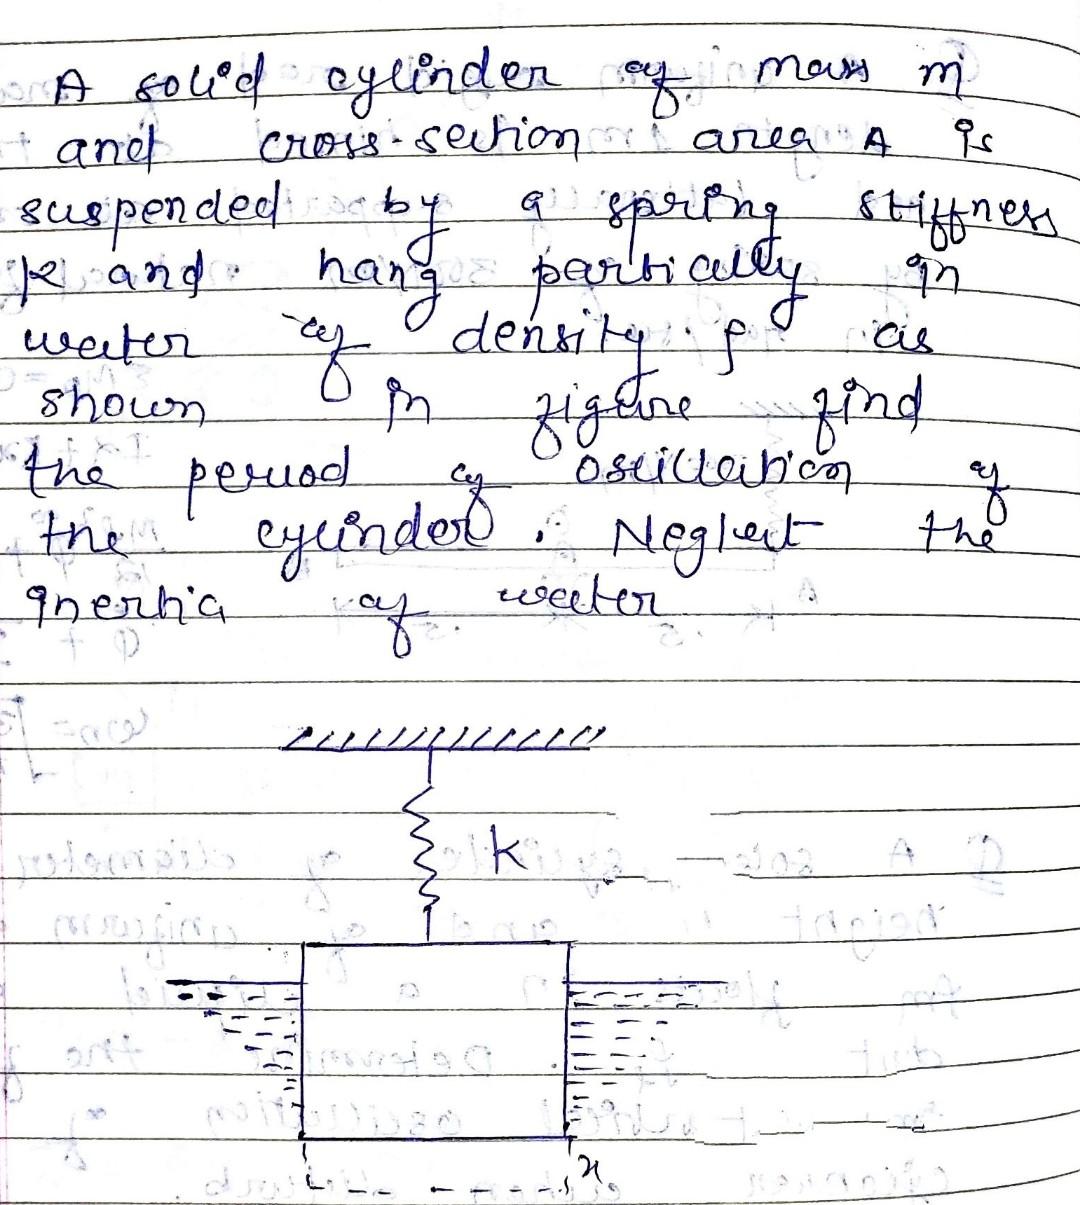 A solid cylinder of mass m
and cross-section area A is
suspended by a spring stiffness
k and hang partially in
water of density ρ as
shown in figure find
the period of oscillation of
the cylinder. Neglect the
inertia of water
k
x